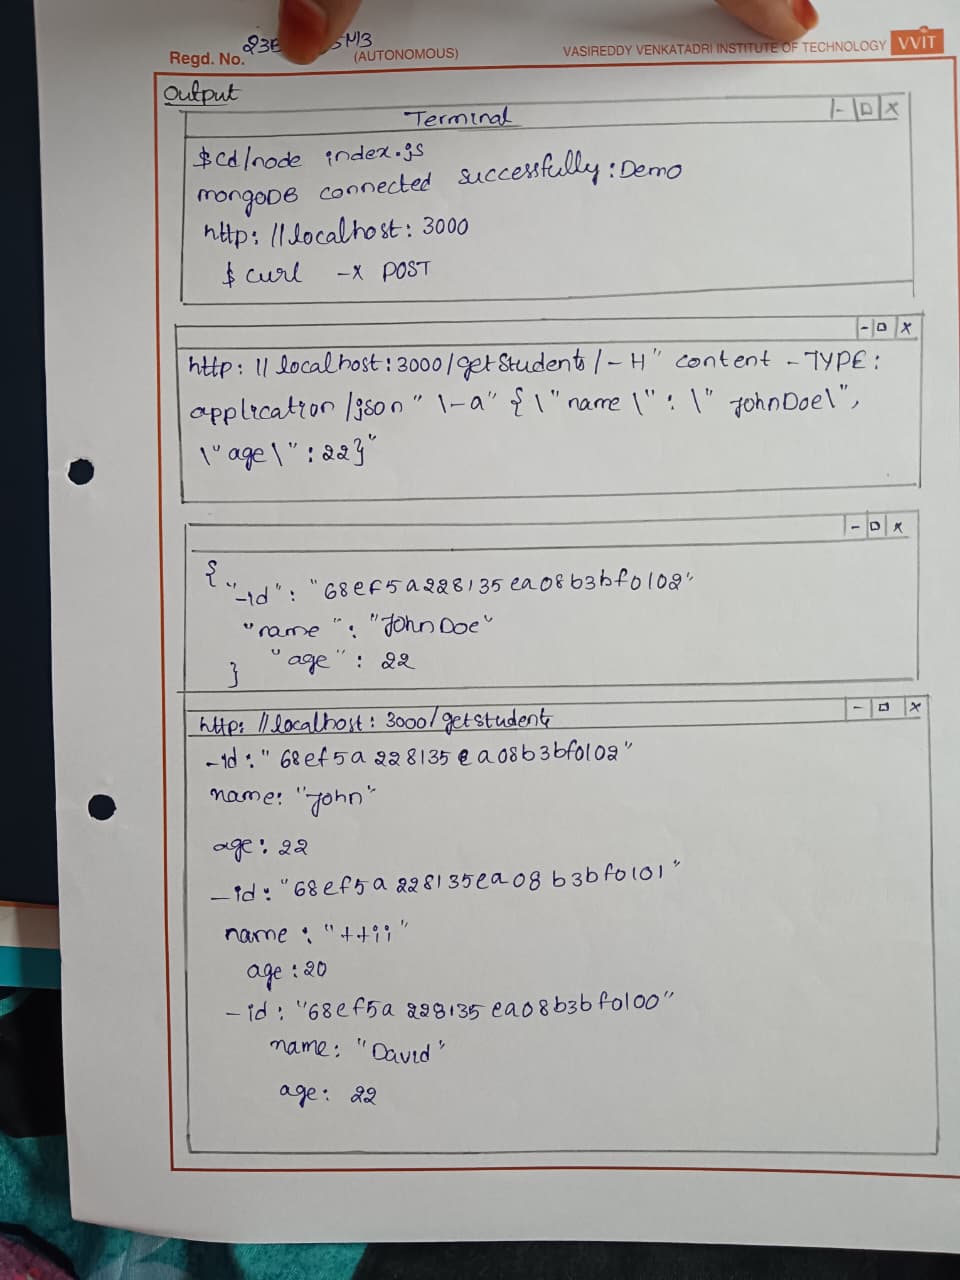 Regd. No.
(AUTONOMOUS)
VASIREDDY VENKATADRI INSTITUTE OF TECHNOLOGY VVIT
Output
Terminal
- □ x
$cd/node index.js
mongoDB connected successfully: Demo
http: //localhost: 3000
$ curl -X POST
- □ x
http: // localhost: 3000/getStudents/-H" content - TYPE:
application /json" \-a" { \" name \" : \" JohnDoe\",
\"age\" : 22}"
- □ x
{
"-id" : "68ef5a228135ea08b3bf0102"
"name" : "John Doe"
"age" : 22
}
- □ x
http: //localhost: 3000/getstudents
-id : "68ef5a228135ea08b3bf0102"
name: "John"
age: 22
_id : "68ef5a228135ea08b3bf0101"
name : "ttii"
age : 20
-id : "68ef5a228135ea08b3bf0100"
name: "David"
age: 22